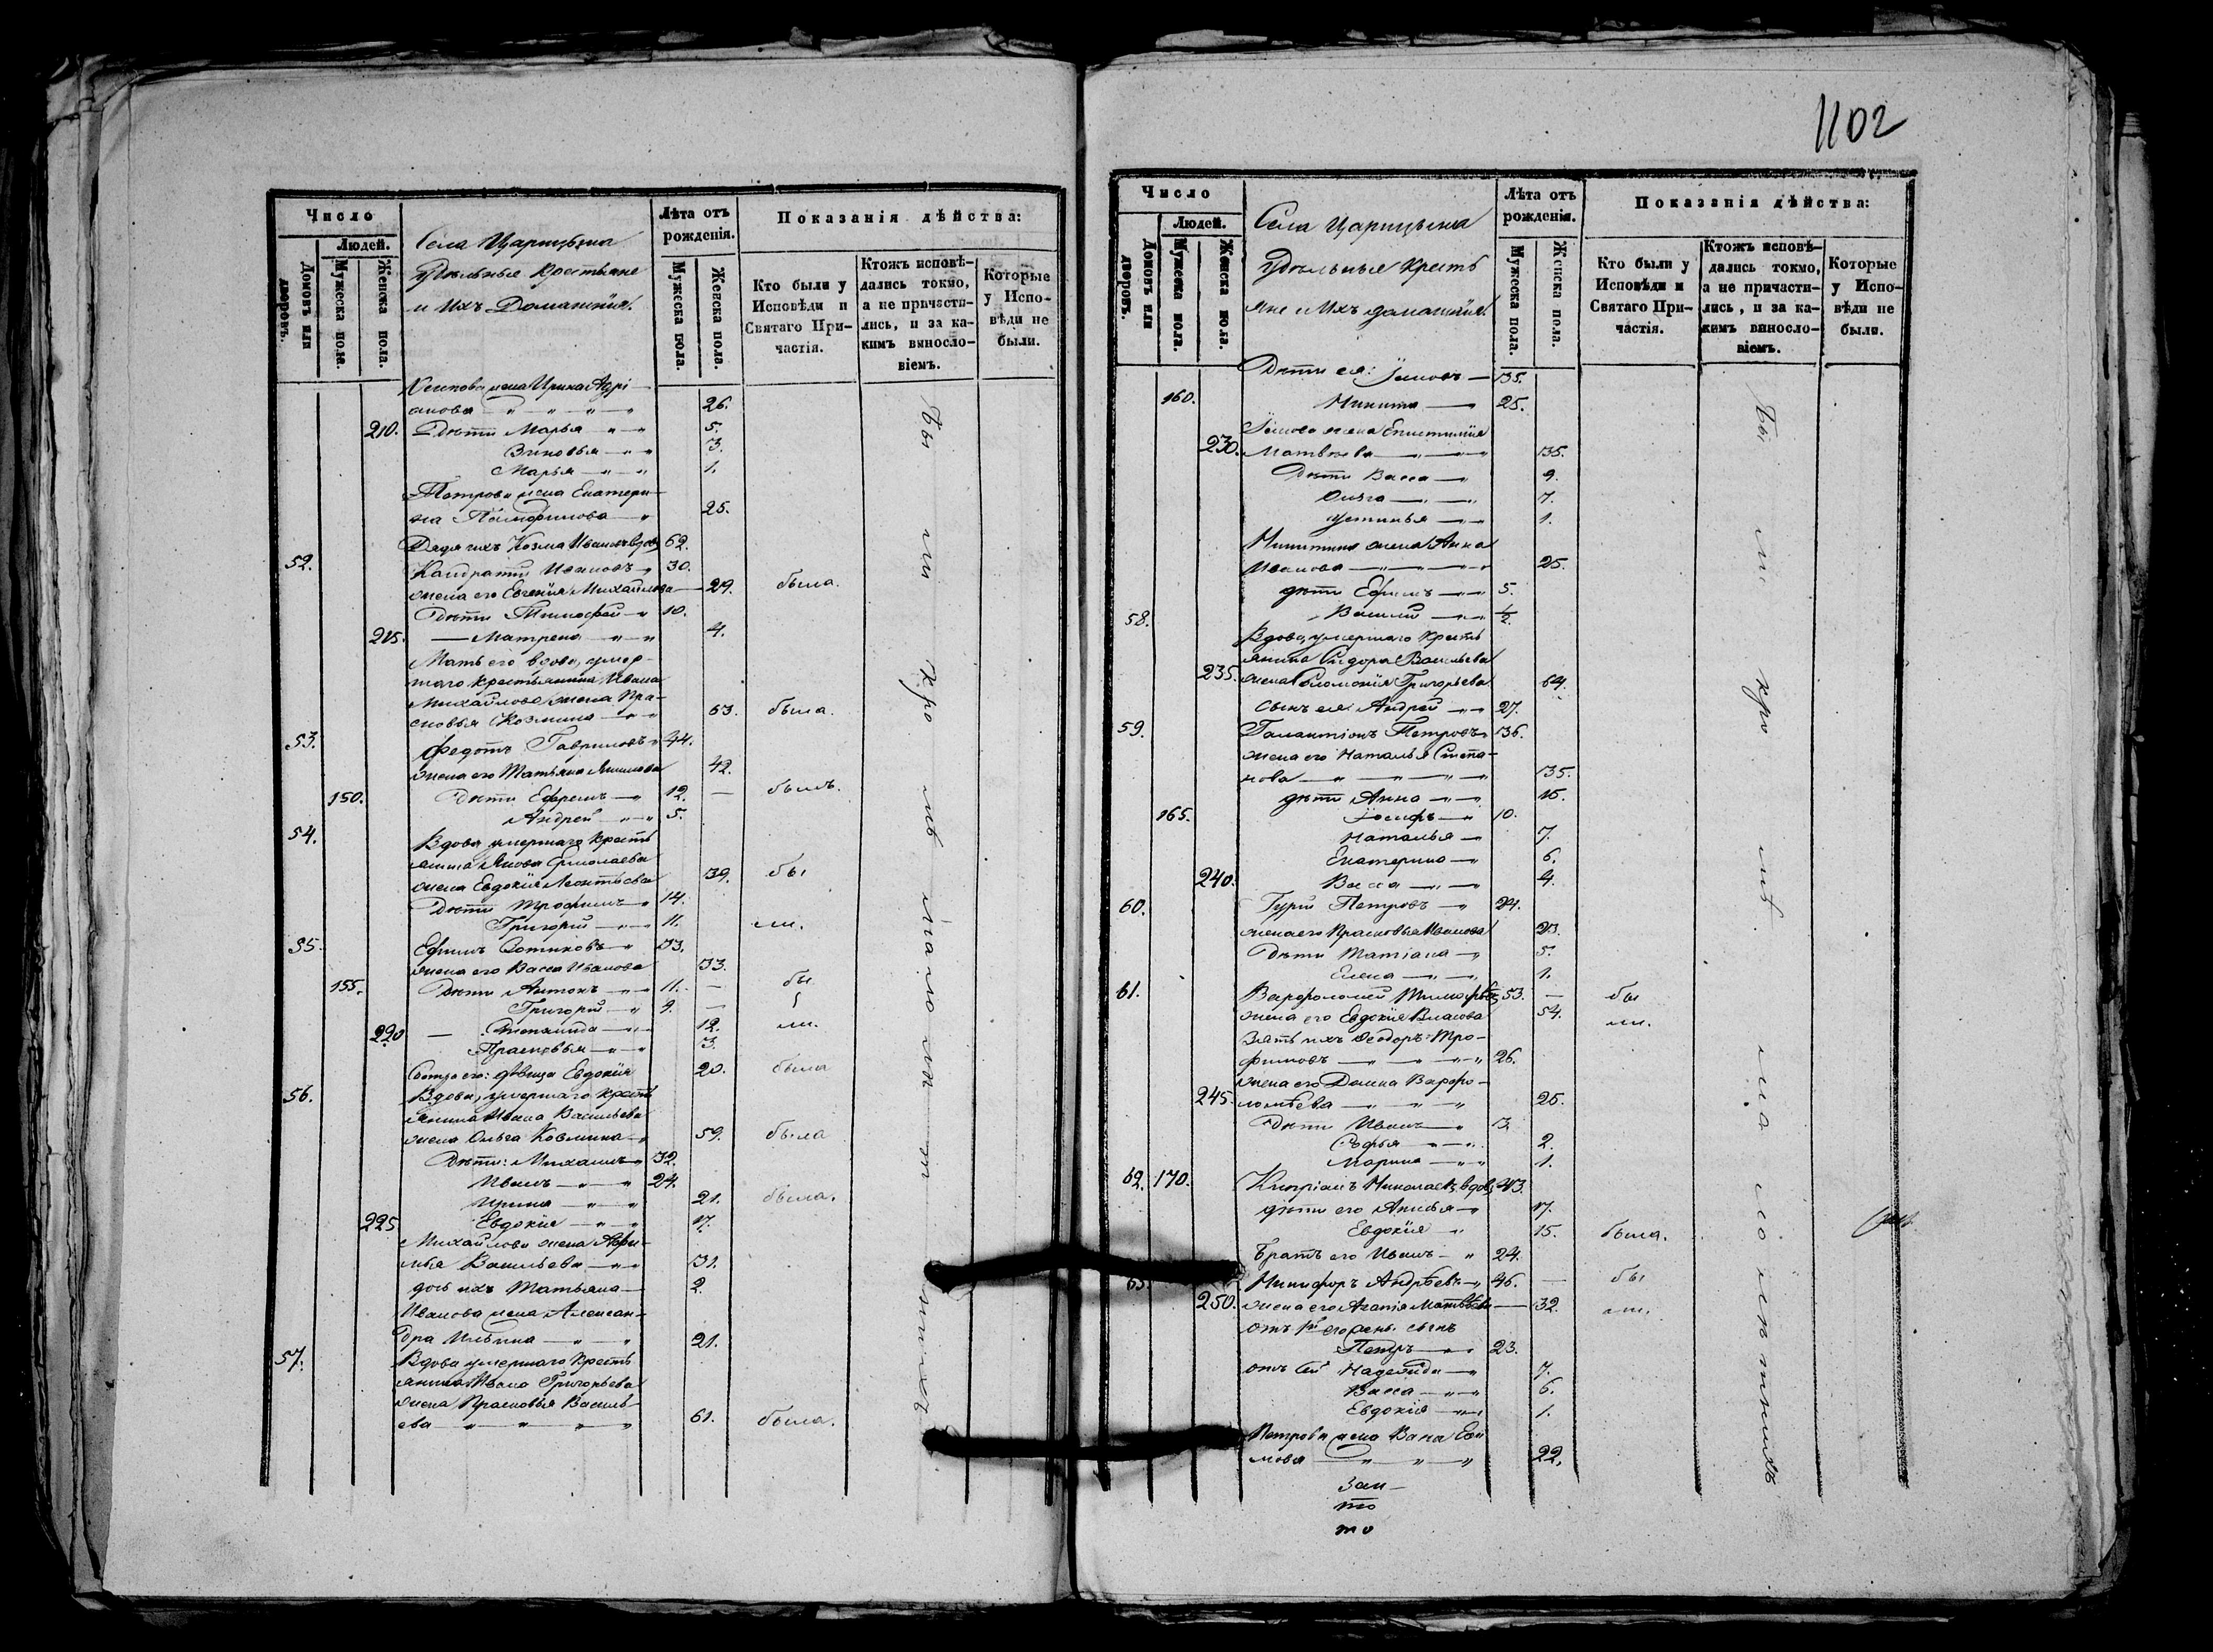 Число
Людей.
Домовъ или дворовъ.
Мужеска пола.
Женска пола.
Села Царицына
Удѣльные Крестьяне
и Ихъ Домашнія.
Лѣта отъ рожденія.
Мужеска пола.
Женска пола.
Показанія дѣйства:
Кто были у Исповѣди и Святаго Причастія.
Ктожъ исповѣдались токмо, а не причастились, и за какимъ винословіемъ.
Которые у Исповѣди не были.
жена Ирина Адрі
анова 26.
210. Дѣти Марья 5.
Зиновья 3.
Марья 1.
Петрова жена Екатери
на Памфилова 25.
Дядя ихъ Козма Ивановъ вдов 62.
52. Кандратій Ивановъ 30.
жена его Евгенія Михайлова 29. была.
Дѣти Тимофей 10.
215. Матрена 4.
Мать его вдова, умер
шаго крестьянина Ивана
Михайлова жена Пра
сковья Козмина 63. была.
53. Федотъ Гавриловъ 44.
жена его Татьяна 42.
150. Дѣти Ефремъ 12. — былъ.
Андрей 5.
54. Вдова умершаго кресть
янина Якова Ермолаева
жена Евдокія Леонтьева 39. бы
Дѣти Трофимъ 14.
Григорій 11. ли.
55. Ефимъ Сотиковъ 33.
жена его Васса Иванова 33.
155. Дѣти Антонъ 11. — бы
Григорій 9. —
220 — Степанида 12. ли.
Прасковья 3.
Сестра его: дѣвица Евдокія 20. была
56. Вдова, умершаго крест
янина Ивана Васильева
жена Ольга Козмина 59. была
Дѣти: Михаилъ 32.
Иванъ 24.
Ирина 21. была.
225. Евдокія 17.
Михайлова жена Афи
мья Васильева 31.
дочь ихъ Татьяна 2.
Иванова жена Алексан
дра Ильина 21.
57. Вдова умершаго кресть
янина Ивана Григорьева
жена Прасковья Василь
ева 61. была.
Бы ли кро мѣ мало лѣ т нихъ
1102
Число
Людей.
Домовъ или дворовъ.
Мужеска пола.
Женска пола.
Села Царицына
Удѣльные Кресть
яне и Ихъ домашнія.
Лѣта отъ рожденія.
Мужеска пола.
Женска пола.
Показанія дѣйства:
Кто были у Исповѣди и Святаго Причастія.
Ктожъ исповѣдались токмо, а не причастились, и за какимъ винословіемъ.
Которые у Исповѣди не были.
Дѣти ея: 35.
160. Никита 25.
жена Епистимія
230. Матвѣева 35.
Дѣти Васса 9.
Ольга 7.
Устинья 1.
Никитина жена Анна
Иванова 25.
дѣти Ефимъ 5.
58. Василій ½
Вдова, умершаго кресть
янина Сидора Васильева
235. жена Соломонія Григорьева 64.
Сынъ ея Андрей 27.
59. Галактіонъ Петровъ 36.
жена его Наталья Степа
нова 35.
дѣти Анна 15.
165. Іосифъ 10.
Наталья 7.
Екатерина 6.
240. Васса 4.
60. Гурій Петровъ 24.
жена его Прасковья Иванова 23.
Дѣти Татіана 5.
Елена 1.
61. Варфоломей Тимофѣев 53. — бы
жена его Евдокія Власова 54. ли.
Зять ихъ Ѳеодоръ Тро
фимовъ 26.
жена его Домна Варфо
245. ломѣева 25.
Дѣти Иванъ 3
Софья 2.
Марина 1.
62. 170. Кипріанъ Николаев вдов 43.
дѣти его Анисья 17.
Евдокія 15. была.
Братъ его Иванъ 24.
63. Никифоръ Андреевъ 46. — бы
250. жена его Агапія Матвѣева — 32. ли.
отъ 1й его жены сынъ
Петръ 23.
отъ сей Надежда 7.
Васса 6.
Евдокія 1.
Петрова жена Васса Ефи
мова 22.
Бы ли кро мѣ ма ло лѣ тнихъ